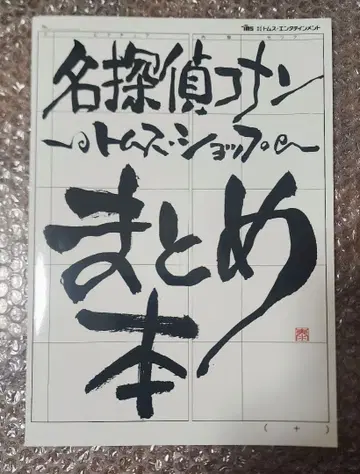 tms 株式会社トムス・エンタテインメント
名探偵コナン
〜トムス・ショップ〜
まとめ
本
( + )